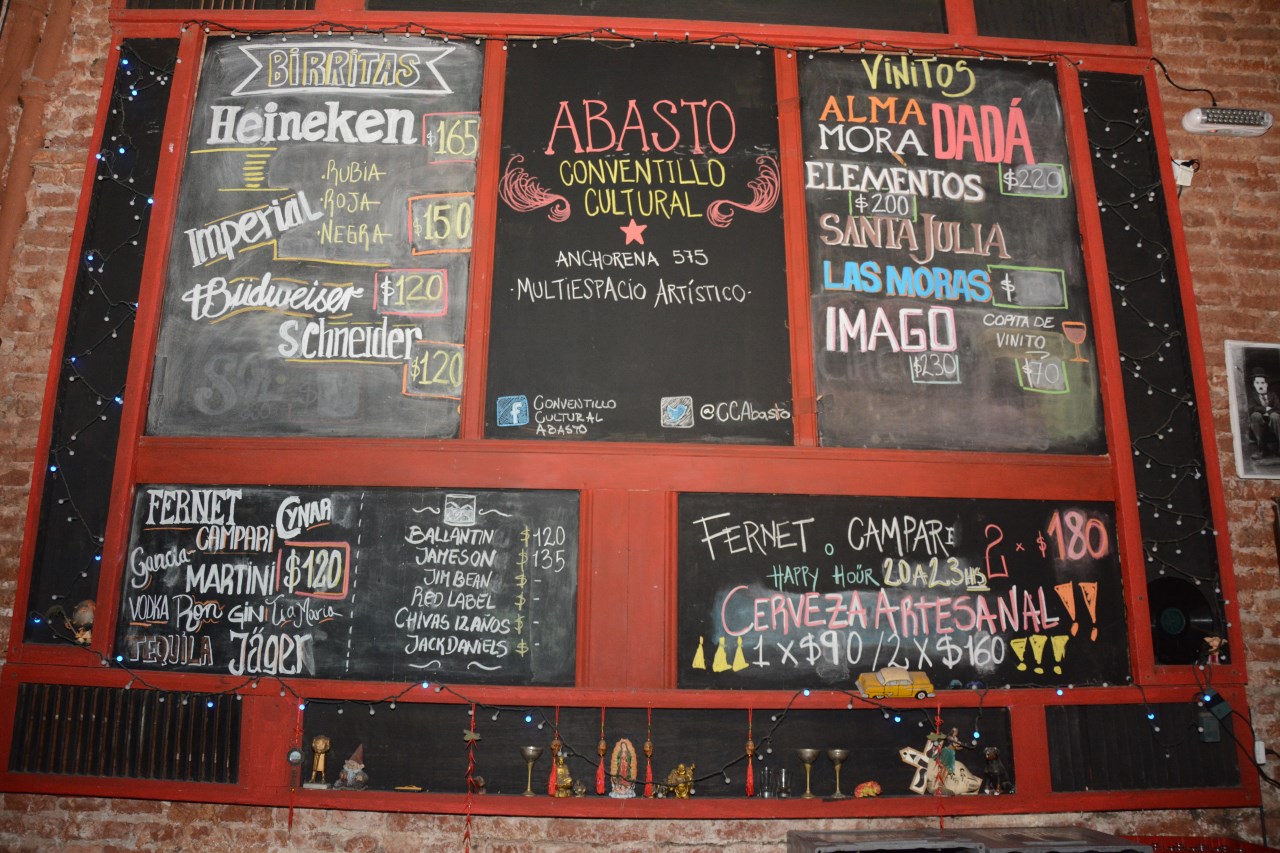 BIRRITAS
Heineken $165
·RUBIA
·ROJA
·NEGRA
Imperial $150
Budweiser $120
Schneider $120
ABASTO
CONVENTILLO
CULTURAL
ANCHORENA 575
·MULTIESPACIO ARTÍSTICO·
f CONVENTILLO
CULTURAL
ABASTO
@CCAbasto
VINITOS
ALMA
MORA
DADÁ
ELEMENTOS $220
$200
SANTA JULIA
LAS MORAS $
IMAGO $230
COPITA DE
VINITO
$70
FERNET CYNAR
CAMPARI
Gancia
MARTINI $120
VODKA Ron GIN Tia Maria
TEQUILA Jäger
BALLANTIN $120
JAMESON $135
JIM BEAN $-
RED LABEL $-
CHIVAS 12 AÑOS $-
JACK DANIELS $-
FERNET o CAMPARI 2 x $180
HAPPY HOÜR 20 A 23 HS
CERVEZA ARTESANAL!!
1 x $90 / 2 x $160 !!!